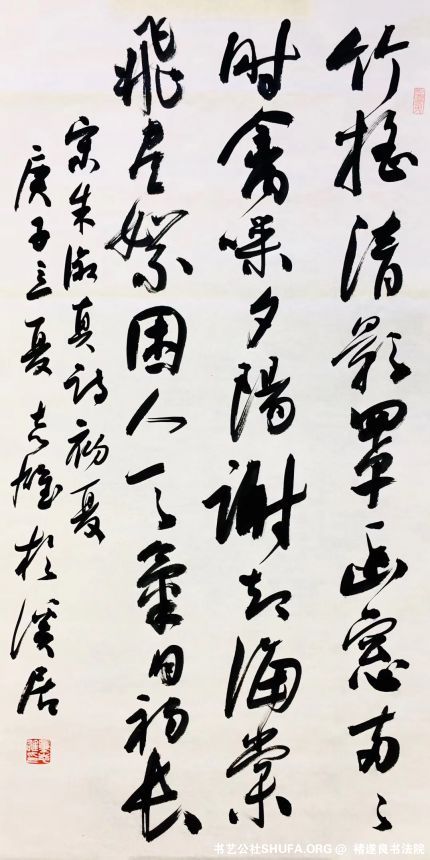 竹搖清影罩幽窓两々
时禽噪夕陽謝却海棠
飛尽絮困人天氣日初長
宋朱淑真詩初夏
庚子立夏志雄於溪居
书艺公社SHUFA.ORG @ 褚遂良书法院